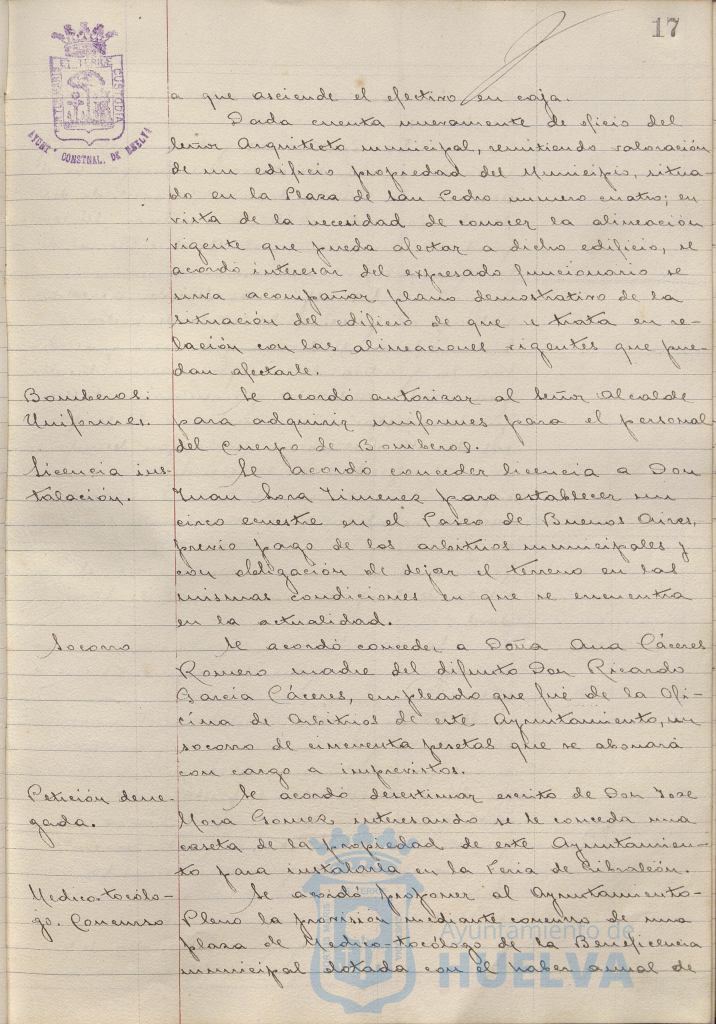 17
PORTUS MARIS ET TERRE CUSTODIA
AYUNT° CONSTNAL. DE HUELVA
a que asciende el efectivo en caja.
Dada cuenta nuevamente de oficio del
señor Arquitecto municipal, remitiendo valoración
de un edificio propiedad del Municipio, situa-
do en la Plaza de San Pedro numero cuatro; en
vista de la necesidad de conocer la alineación
vigente que pueda afectar a dicho edificio, se
acordó interesar del expresado funcionario se
sirva acompañar plano demostrativo de la
situación del edificio de que se trata en re-
lación con las alineaciones vigentes que pue-
dan afectarle.
Bomberos:
Uniformes.
Se acordó autorizar al Señor Alcalde
para adquirir uniformes para el personal
del Cuerpo de Bomberos.
Licencia ins-
talación.
Se acordó conceder licencia a Don
Juan Lora Jimenez para establecer un
circo ecuestre en el Paseo de Buenos Aires,
previo pago de los arbitrios municipales y
con obligación de dejar el terreno en las
mismas condiciones en que se encuentra
en la actualidad.
Socorro
Se acordó conceder a Doña Ana Cáceres
Romero madre del difunto Don Ricardo
Garcia Cáceres, empleado que fué de la Ofi-
cina de Arbitrios de este Ayuntamiento, un
socorro de cincuenta pesetas que se abonará
con cargo a imprevistos.
Petición dene-
gada.
Se acordó desestimar escrito de Don José
Mora Gomez, interesando se le conceda una
caseta de la propiedad de este Ayuntamien-
to para instalarla en la Feria de Gibraleón.
Medico-tocólo-
go. Concurso
Se acordó proponer al Ayuntamiento-
Pleno la provisión mediante concurso de una
plaza de Medico-tocólogo de la Beneficencia
municipal dotada con el haber anual de
Ayuntamiento de
HUELVA